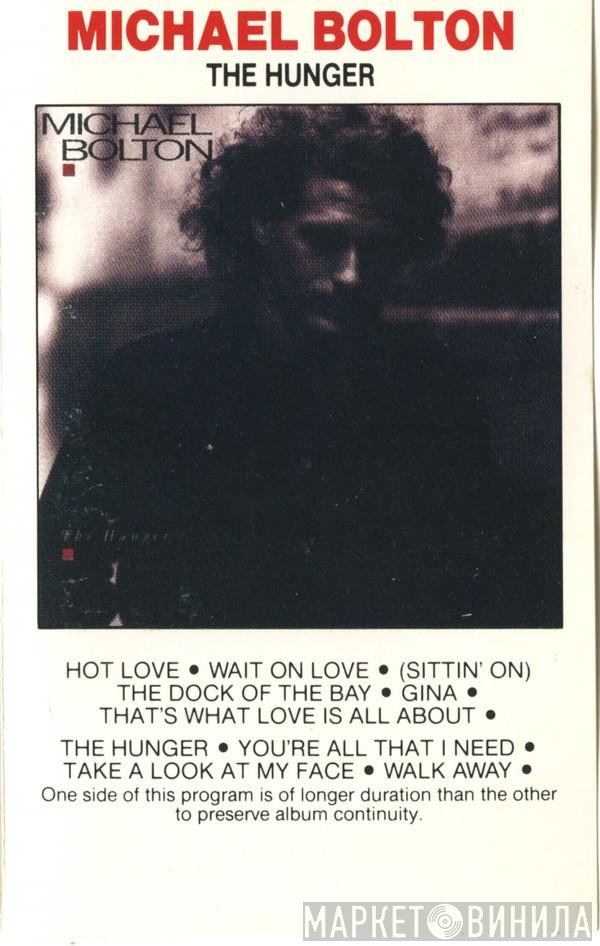 MICHAEL BOLTON
THE HUNGER
MICHAEL
BOLTON
The Hunger
HOT LOVE • WAIT ON LOVE • (SITTIN' ON)
THE DOCK OF THE BAY • GINA •
THAT'S WHAT LOVE IS ALL ABOUT •
THE HUNGER • YOU'RE ALL THAT I NEED •
TAKE A LOOK AT MY FACE • WALK AWAY •
One side of this program is of longer duration than the other
to preserve album continuity.
МАРКЕТ ВИНИЛА